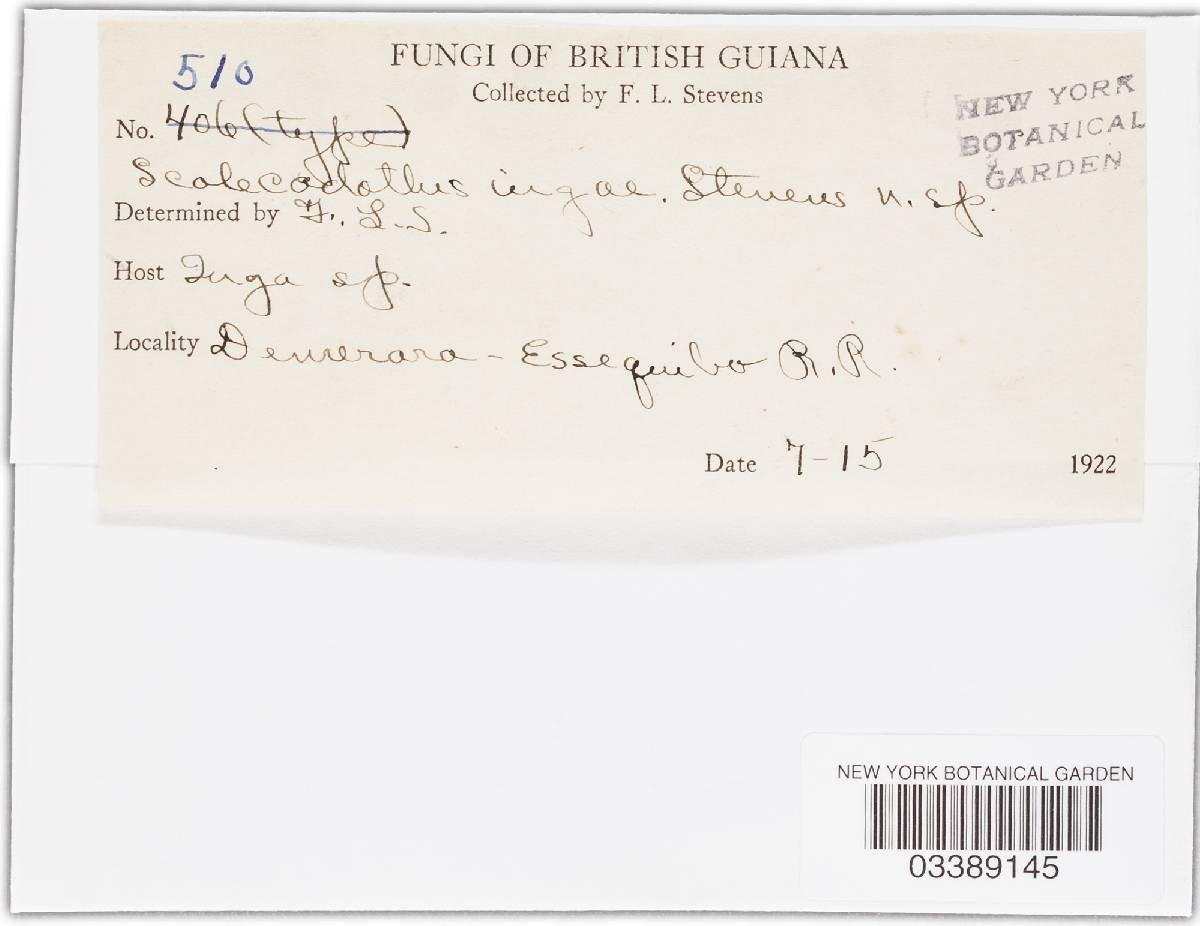 FUNGI OF BRITISH GUIANA
Collected by F. L. Stevens
510
No. 406 (type)
Scolecodothus ingae. Stevens n. sp.
Determined by F. L. S.
Host Inga sp.
Locality Demerara - Essequibo R. R.
Date 7-15 1922
NEW YORK
BOTANICAL
GARDEN
NEW YORK BOTANICAL GARDEN
03389145